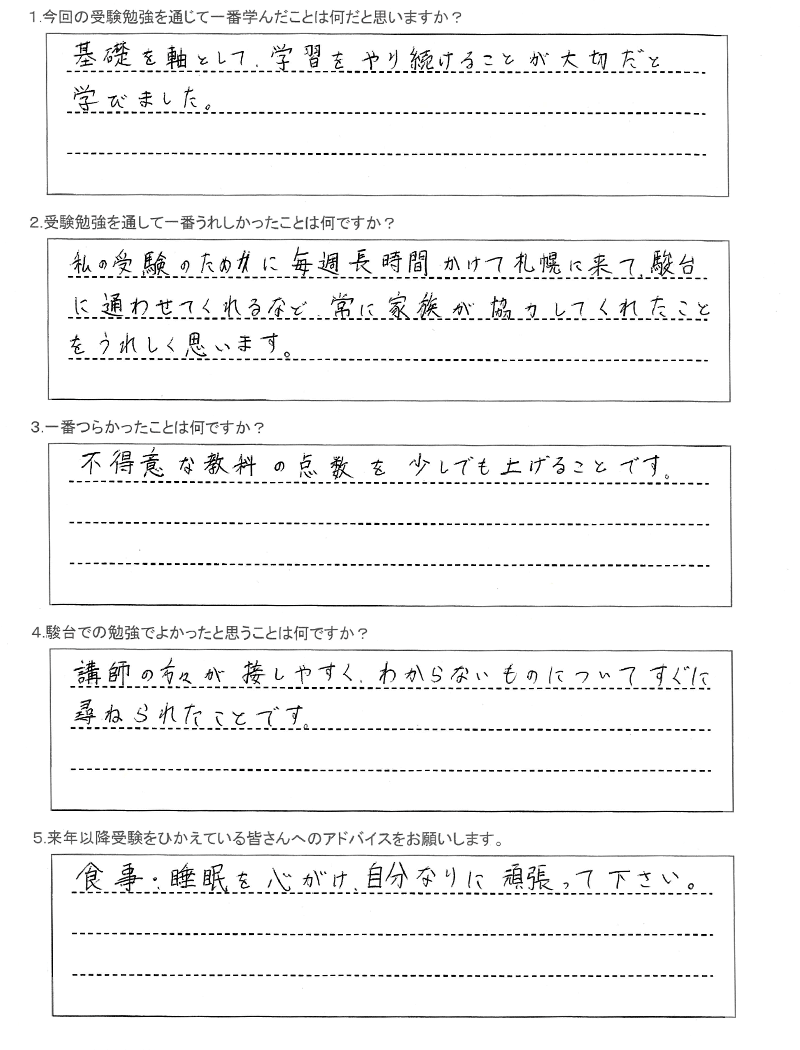 1.今回の受験勉強を通じて一番学んだことは何だと思いますか？
基礎を軸として、学習をやり続けることが大切だと
学びました。
2.受験勉強を通して一番うれしかったことは何ですか？
私の受験のために毎週長時間かけて札幌に来て、駿台
に通わせてくれるなど、常に家族が協力してくれたこと
をうれしく思います。
3.一番つらかったことは何ですか？
不得意な教科の点数を少しでも上げることです。
4.駿台での勉強でよかったと思うことは何ですか？
講師の方々が接しやすく、わからないものについてすぐに
尋ねられたことです。
5.来年以降受験をひかえている皆さんへのアドバイスをお願いします。
食事・睡眠を心がけ、自分なりに頑張って下さい。